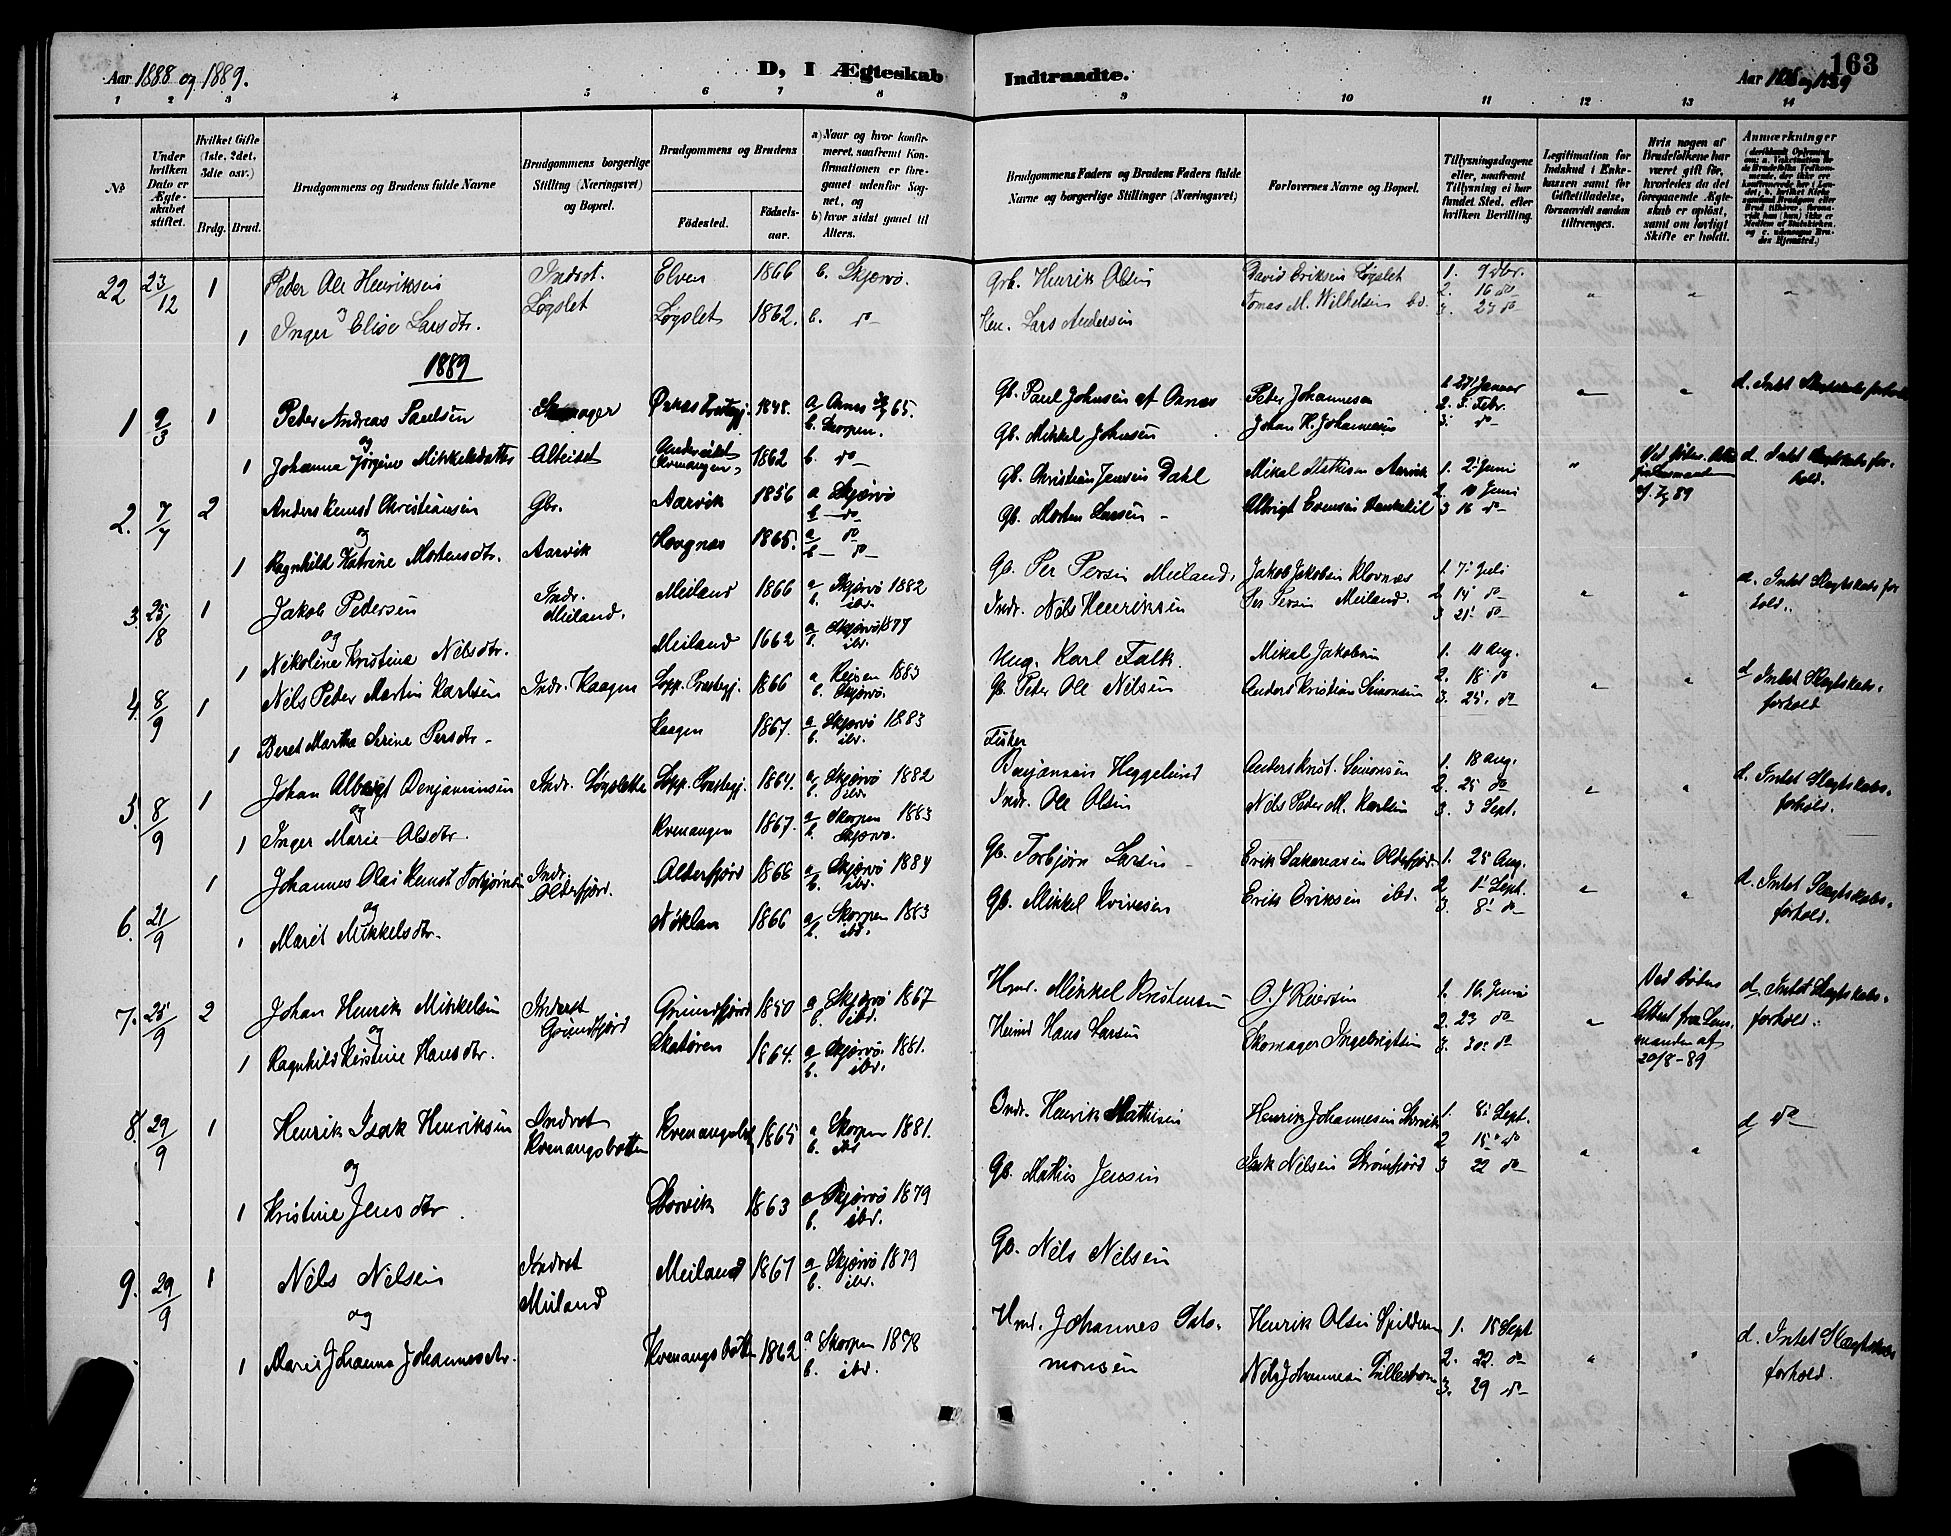 163
Aar 1888 og 1889.
D, I Ægteskab Indtraadte.
Aar 188 og 1889
1 2 3 4 5 6 7 8 9 10 11 12 13 14
No
Under hvilken Dato er Ægteskabet stiftet.
Hvilket Gifte (1ste, 2det, 3dte osv.)
Brdg. Brud.
Brudgommens og Brudens fulde Navne
Brudgommens borgerlige Stilling (Næringsvei) og Bopæl.
Brudgommens og Brudens
Fødested. Fødselsaar.
a) Naar og hvor konfirmeret, saafremt Konfirmationen er foregaaet udenfor Sognet, og
b) hvor sidst gaaet til Alters.
Brudgommens Faders og Brudens Faders fulde Navne og borgerlige Stillinger (Næringsvei)
Forlovernes Navne og Bopæl.
Tillysningsdagene eller, saafremt Tillysning ei har fundet Sted, efter hvilken Bevilling.
Legitimation for Indskud i Enkekassen samt for Giftetilladelse, forsaavidt saadan tiltrænges.
Hvis nogen af Brudefolkene har været gift før, hvorledes da det foregaaende Ægteskab er opløst, samt om lovligt Skifte er holdt.
Anmærkninger
22 23/12 1 Peder Ole Henriksen Indrst. Elven 1866 b. Skjærvø. Grb. Henrik Olsen David Eriksen Løgslet 1. 9 dbr.
og Løgslet Tomas M. Wilhelsen bd. 2. 16 do
1 Inger Elise Larsdtr. Løgslet 1862. b. do Hen. Lars Andersen 3. 23 do
1889
1 9/3 1 Peder Andreas Paulsen Skomager 1848. a b. Skorpen. Gb. Paul Johnsen af Oxnæs Peter Johannesen 1. 27 Januar 2. 3. Febr. 3. do d. Intet Slegtskabsforhold
og Johan H. Johannesen
1 Johanna Jørgine Mikkelsdatter Alteidet Kvenangen 1862 b. do Gb. Mikkel Johnsen
2. 7/7 2 Anders Kunst Christiansen Gbr. Aarvik 1856 a Skjærvø b do Gb. Christian Jensen Dahl Mikal Mathisen Aarvik 1. 2. Juni 2. 10 Juni 3 16 do d. Intet Slegtskabsforhold.
og
1 Ragnhild Katrine Mortensdtr. Aarvik 1865. a do b do Gb. Morten Larsen Albrigt Evensen
3. 25/18 1 Jakob Pedersen Indr. Meiland. Meiland 1866 a Skjærvø 1882 b. ibr. Gb. Per Persen Meiland. Jakob Jakobsen Klovnæs 1. 7. Juli 2 14 do 3 21. do d. Intet Slegtskabsforhold.
og
1 Nikoline Kristine Nilsdtr. Meiland 1662 a Skjærvø 1877 b. ibr. Indr. Nils Henriksen Per Persen Meiland.
4. 8/9 1 Nils Peder Martin Karlsen Indr. Kaagen Lopp. Præstegj. 1866 a Reisen 1883 b. Skjærvø. Ung. Karl Falk. Mikal Jakobsen 1. 11 Aug. 2. 18 do 3. 25. do d Intet Slegtskabsforhold
1 Beret Martha Serine Persdtr. Kaagen 1867. a Skjærvø 1883 b. ibr. Gb. Peder Ole Nilsen Anders Kristian Simonsen
5. 8/9 1 Johan Albregt Benjaminsen Indr. Løgsletta Lopp. Præstegj. 1864. a. Skjærvø 1882 b. ibr. Fisker Benjamin Heggelund Anders Krist. Simonsen 1. 18 Aug. 2. 25 do 3. 3 Sept. d. Intet Slegtskabsforhold.
og
1 Inger Marie Olsdtr. Kvenangen 1867. a Skorpen 1883 b. Skjærvø. Indr. Ole Olsen Nils Peder M. Karlsen
6. 21/9 1 Johannes Olai Kunst Torbjørnsen Indr. Olderfjord. Alderfjord 1866 a Skjærvø 1884 b. ibr. Gb. Torbjørn Larsen Erik Sakariasen Olderfjord 1. 25 Aug. 2. 1. Sept. 3. 8. do d. Intet Slegtskabsforhold.
og
1 Marit Mikkelsdtr. Nøklan 1866 a/ Skorpen 1883 b. ibr. Gb. Mikkel Kvivesen Erik Eriksen ibd.
7. 25/9 2 Johan Henrik Mikkelsen Inderst Grundfjord Grundfjord 1850 a Skjærvø 1867 b. ibd. Hmd. Mikkel Kristensen O. J. Reiersen 1. 16. Juni 2. 23 do 3. 30. do Ved Døden Attest fra Lensmanden af 20/8-89 d. Intet Slegtskabsforhold.
og
1 Ragnhild Kirstine Hansdtr. Skatøren 1864. a Skjærvø 1881. b. ibr. Husmd Hans Larsen Skomager Ingebrigtsen
8. 29/9 1 Henrik Isak Henriksen Inderst Kvenangsbotten 1865 a Skorpen 1881. b. ibd Indr. Henrik Mathisen Henrik Johannesen Storvik 1. 8. Sept. 2 15. do 3 22 do d do
og
1 Kristine Jensdtr. Storvik 1863 a Skjærvø 1879 b. ibd. Gb. Mathis Jensen Isak Nilsen Strømfjord
9. 29/9 1 Nils Nilsen Inderst Meiland Meiland 1867 a Skjærvø 1879 b. ibr. Gb. Nils Nilsen
og
1 Marie Johanna Johannesdtr. Kvenangsbotn 1862 a Skorpen 1878 b. ibr. Hmd. Johannes Salomonsen Henrik Olsen Spildern 1. 15 Sept 2. 22. do 3. 29 do d. Intet Slegtskabsforhold.
Nils Johannesen